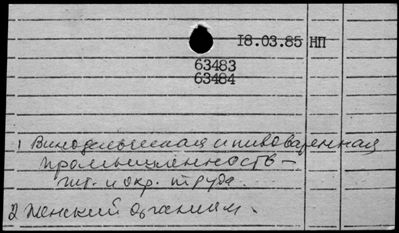 18.03.85 НП
63483
63484
1 Винодельческая и пивоваренная
промышленность –
гиг. и охр. труда.
2 Женский организм.